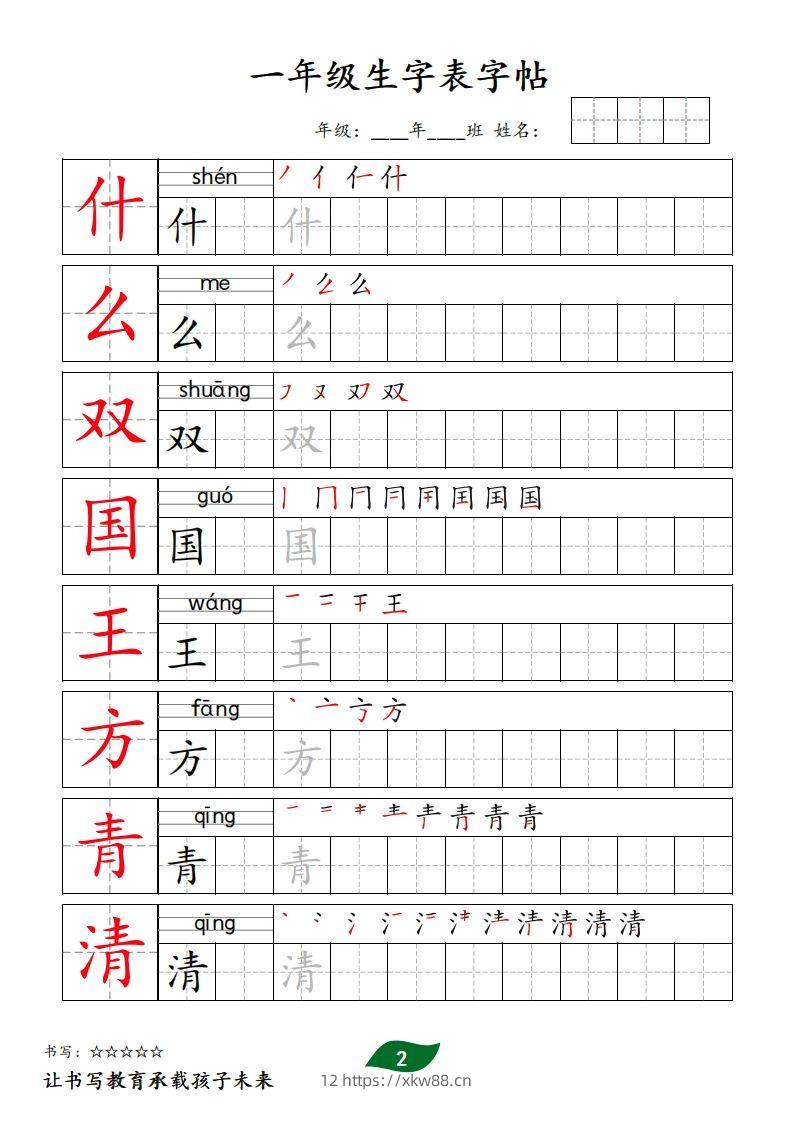 一年级生字表字帖
年级：____年____班 姓名：
什 shén 丿 亻 仁 什
什 什
么 me 丿 么 么
么 么
双 shuāng 刀 又 双 双
双 双
国 guó 丨 冂 冂 冃 用 国 国 国
国 国
王 wáng 一 二 干 王
王 王
方 fāng 丶 亠 方 方
方 方
青 qīng 一 二 キ 龶 青 青 青 青
青 青
清 qīng 丶 冫 氵 氵 氵 汢 清 清 清 清 清
清 清
书写：☆☆☆☆☆
2
让书写教育承载孩子未来
12 https://xkw88.cn